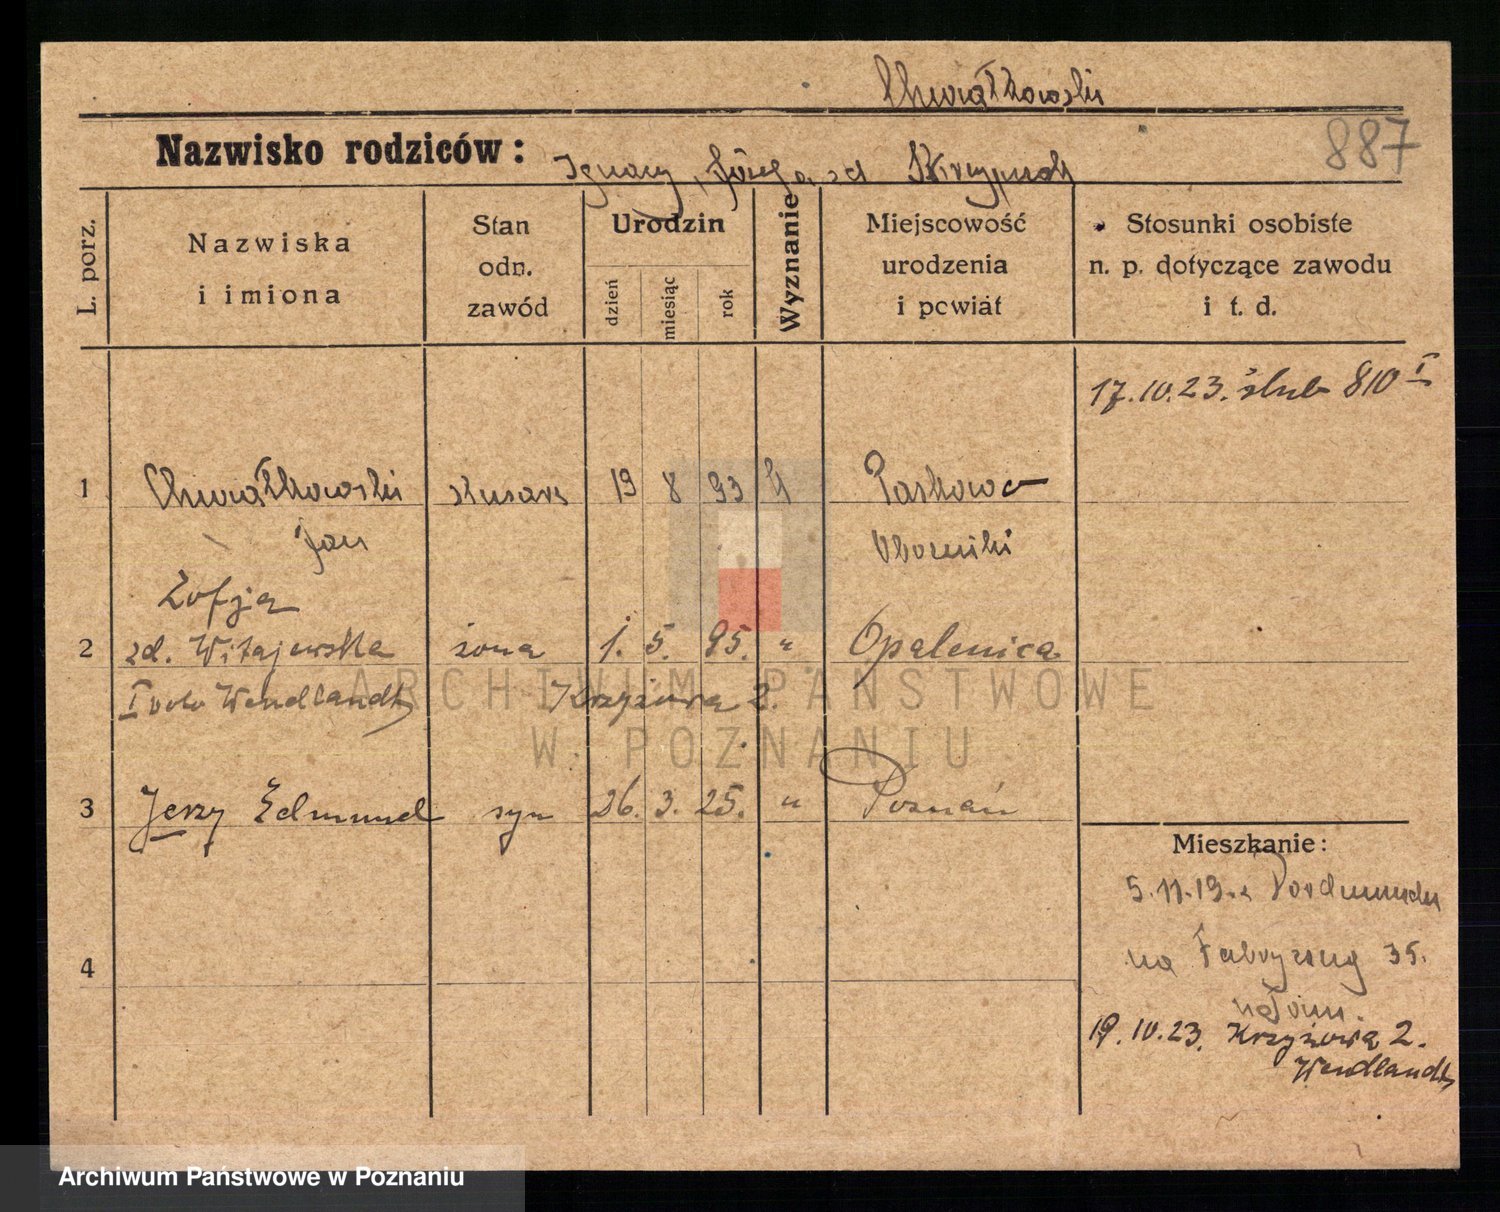 Chwałkowski
887
Nazwisko rodziców: Ignacy, Józefa, zd Skrzypczak
L. porz.
Nazwiska
i imiona
Stan
odn.
zawód
Urodzin
dzień
miesiąc
rok
Wyznanie
Miejscowość
urodzenia
i powiat
Stosunki osobiste
n. p. dotyczące zawodu
i t. d.
17.10.23. ślub 810 I
1 Chwałkowski ślusarz 19 8 93 Paskowo
Jan Oborniki
Zofja
2 zd. Witajewska żona 1. 5. 95. " Opalenica
I voto Wendlandt Krzyżowa 2.
3 Jerzy Edmund syn 26. 3. 25. " Poznań
Mieszkanie:
5.11.19. z Dordmundu
na Fabryczną 35.
4
19.10.23. Krzyżowa 2.
Wendlandt
ARCHIWUM PAŃSTWOWE
W POZNANIU
Archiwum Państwowe w Poznaniu